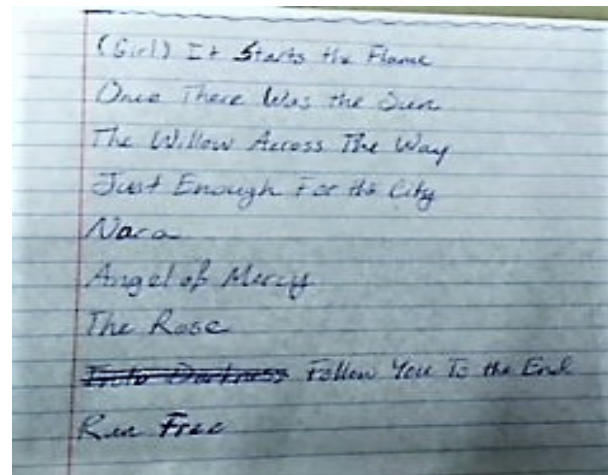 (Girl) It Starts the Flame
Once There Was the Sun
The Willow Across The Way
Just Enough For the City
Nara
Angel of Mercy
The Rose
Into Darkness Follow You To the End
Run Free